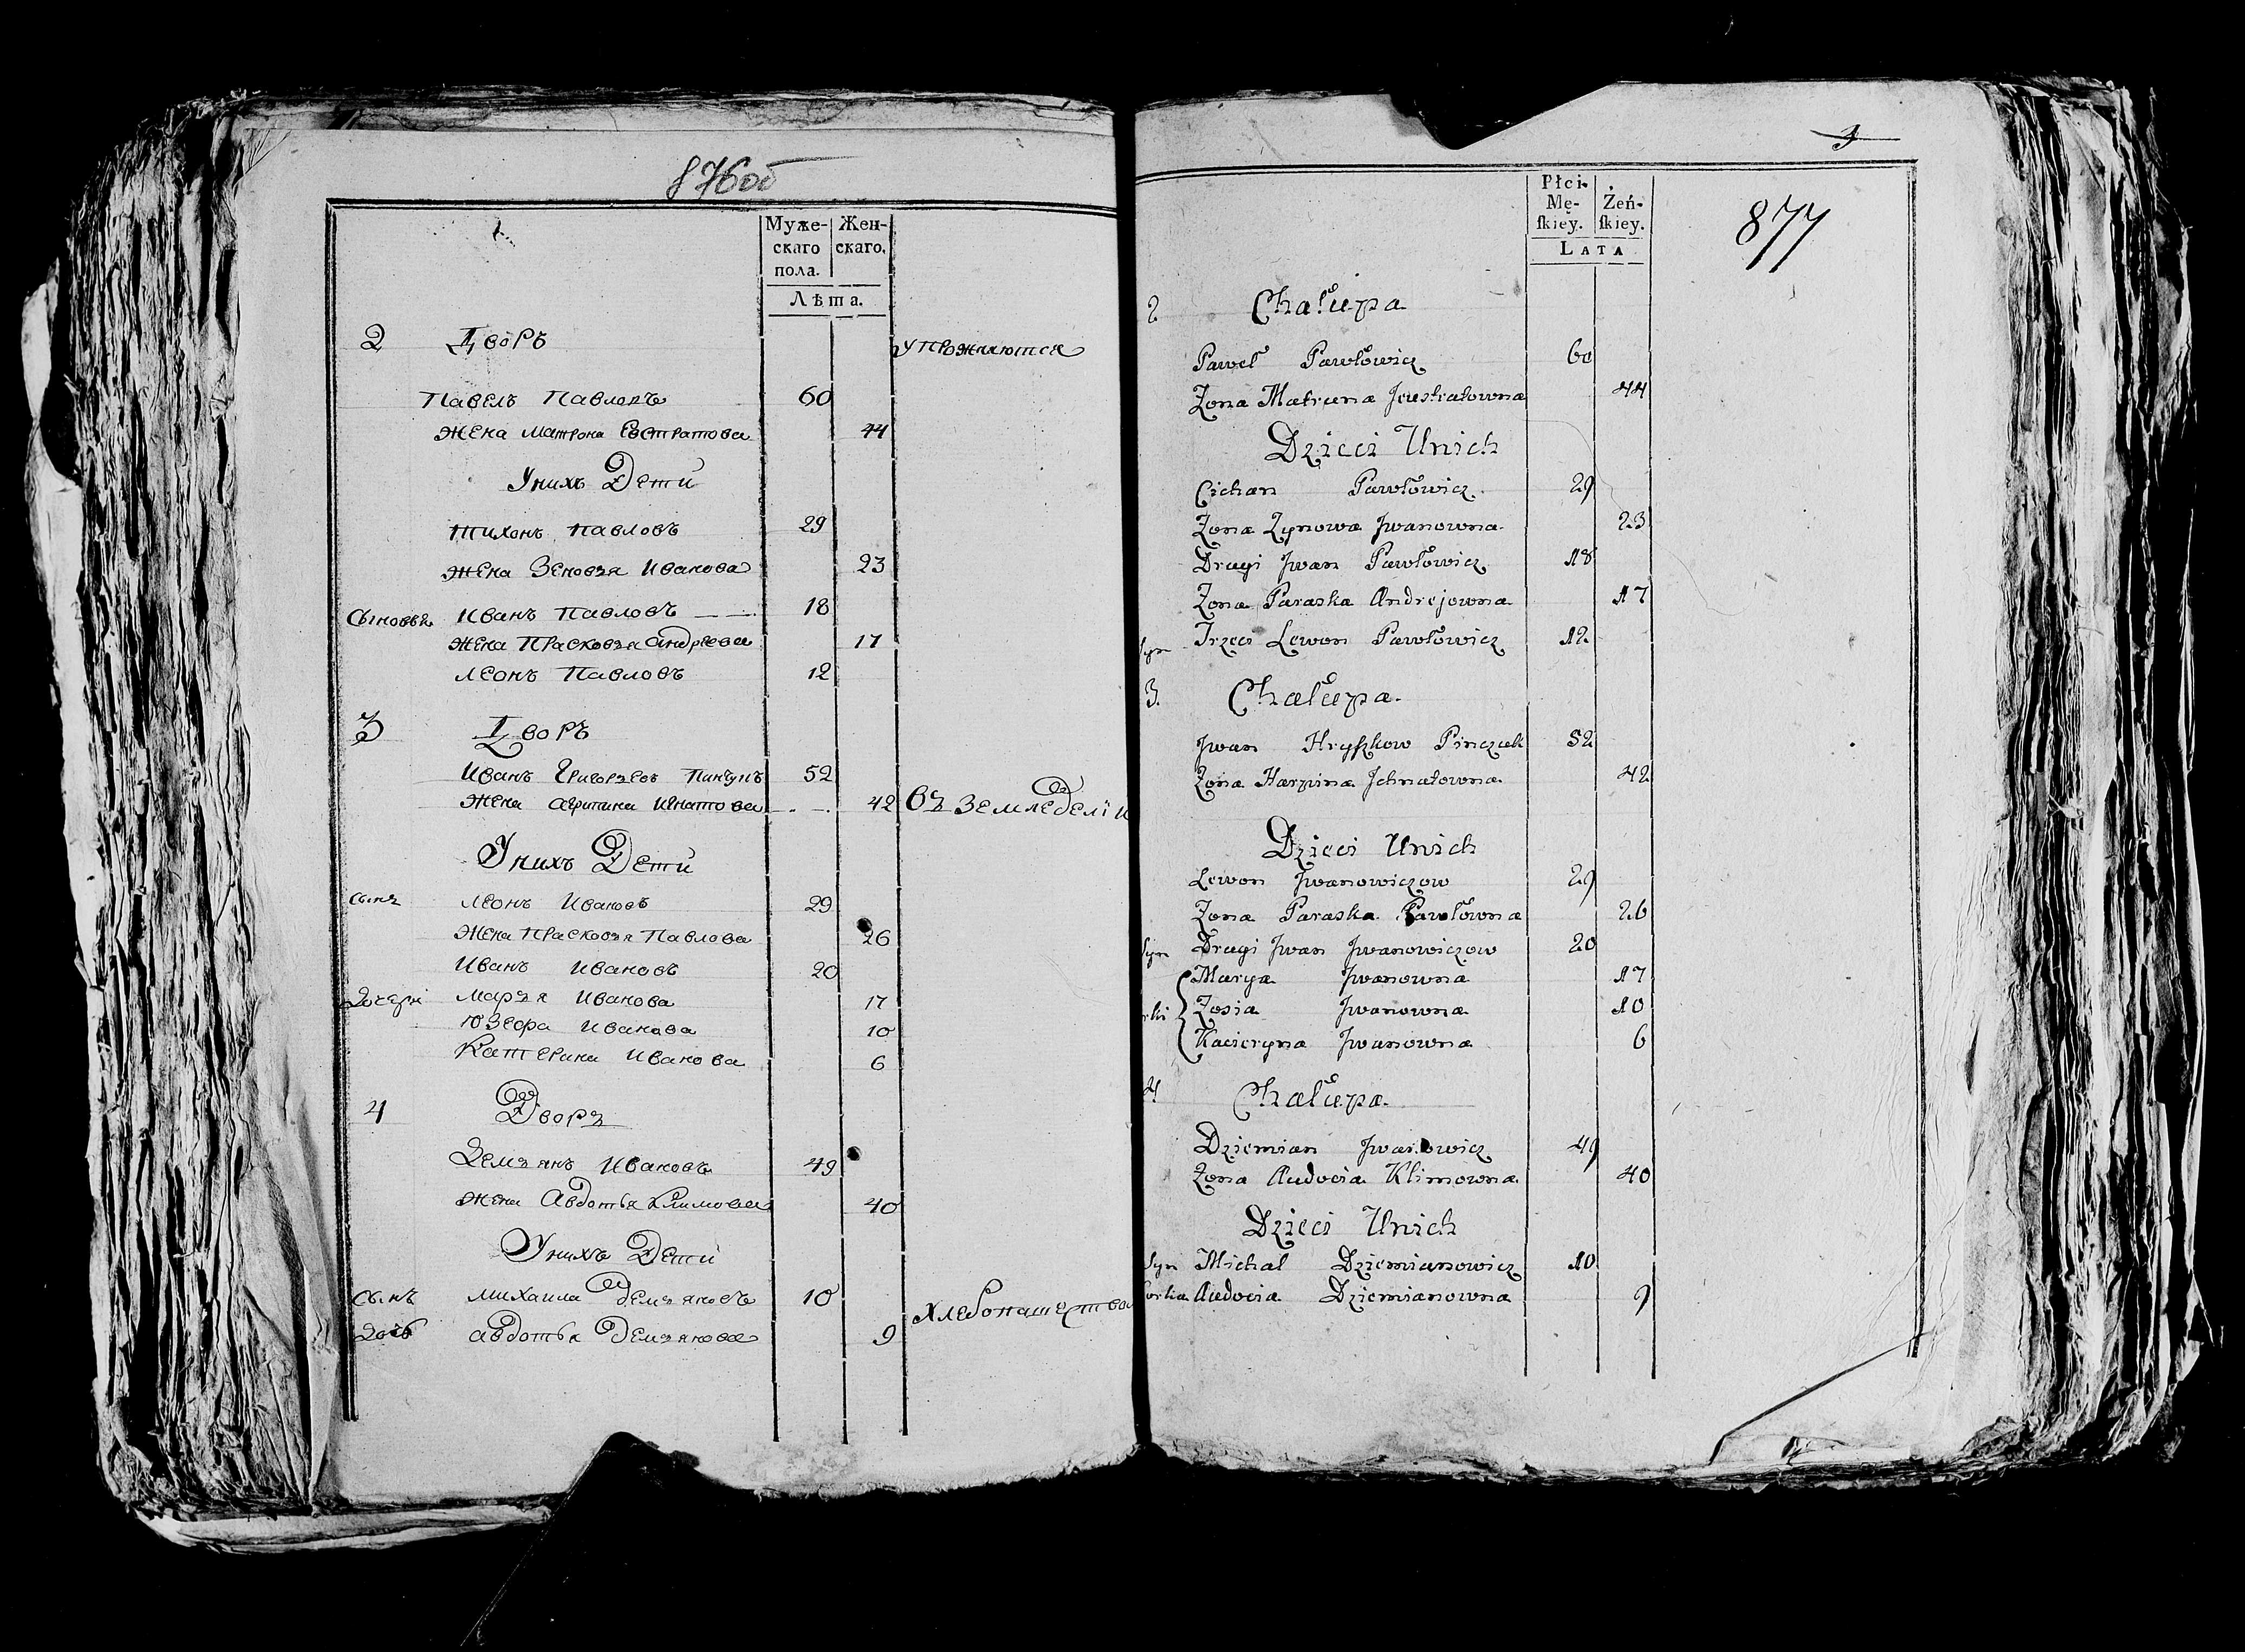 876об
Муже- Жен-
скаго скаго.
пола.
Лѣта.
2 Дворъ упрожняются
Павелъ Павловъ 60
жена Матрона Евстратова 44
Унихъ Дети
Тихонъ Павловъ 29
жена Зеновъя Иванова 23
Сыновья Иванъ Павловъ 18
жена Прасковъя Андреева 17
Леонъ Павловъ 12
3 Дворъ
Иванъ Григоръевъ Пинчукъ 52
жена Агрипина Игнатова 42 Въ Земледелiи
Унихъ Дети
сынъ Леонъ Ивановъ 29
жена Прасковъя Павлова 26
Иванъ Ивановъ 20
Дочери Маръя Иванова 17
Юзефа Иванова 10
Катерина Иванова 6
4 Дворъ
Демъянъ Ивановъ 49
жена Авдотья Климова 40
Унихъ Дети
сынъ Михаила Демъяновъ 10
Дочь Авдотья Демъянова 9
Хлебопашество
9
Płci- Żeń-
Mę- skiey.
skiey.
LATA
877
2 Chałupa
Paweł Pawłowicz 60
Zona Matruna Jeustratowna 44
Dzieci Unich
Cichan Pawłowicz 29
Zona Zynowa Jwanowna 23
Drugi Jwan Pawłowicz 18
Zona Paraska Andrejowna 17
Syn Trzeci Lewon Pawłowicz 12
3. Chałupa.
Jwan Hryszkow Pinczuk 52
Zona Harpina Jehnatowna 42
Dzieci Unich
Lewon Jwanowiczow 29
Zona Paraska Pawłowna 26
Syn Drugi Jwan Jwanowiczow 20
Marya Jwanowna 17
rki Zosia Jwanowna 10
Kacieryna Jwanowna 6
4 Chałupa.
Dziemian Jwanowicz 49
Zona Audocia Klimowna 40
Dzieci Unich
Syn Michal Dziemianowicz 10
orka Audocia Dziemianowna 9